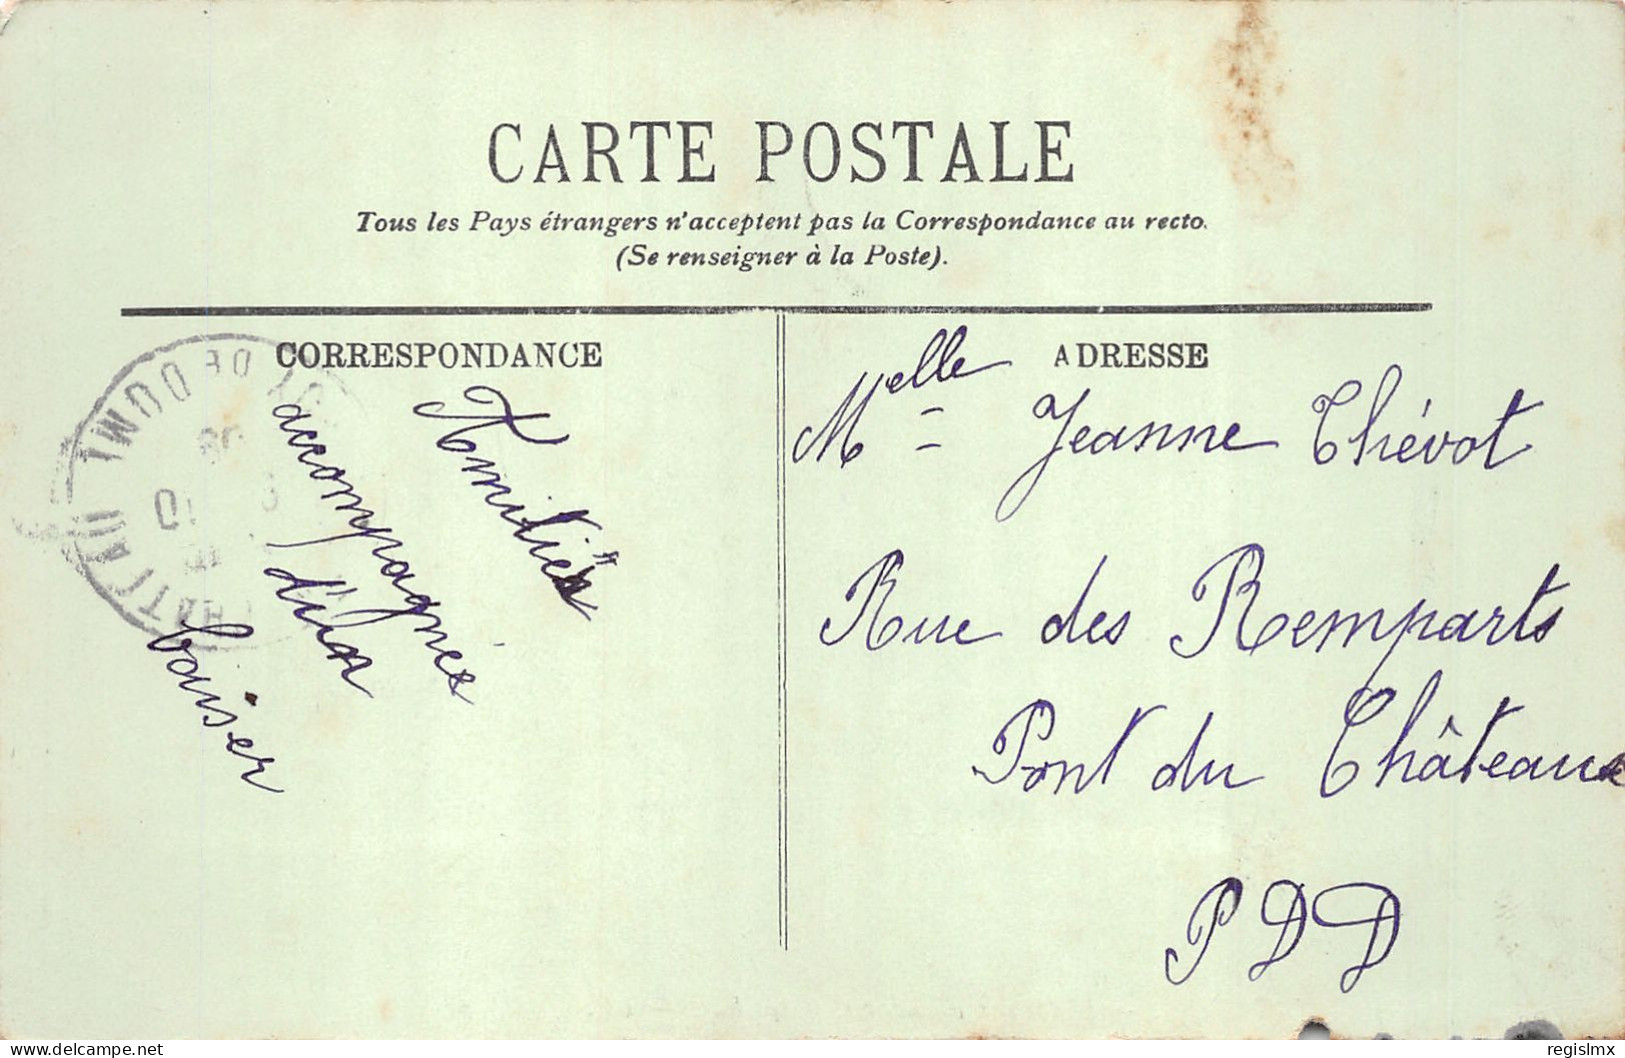 CARTE POSTALE
Tous les Pays étrangers n'acceptent pas la Correspondance au recto.
(Se renseigner à la Poste).
CORRESPONDANCE
Amitiés
accompagnées
d'un
baiser
ADRESSE
Melle Jeanne Thévot
Rue des Remparts
Pont du Château
P D D
DE DOME
regislmx
delcampe.net